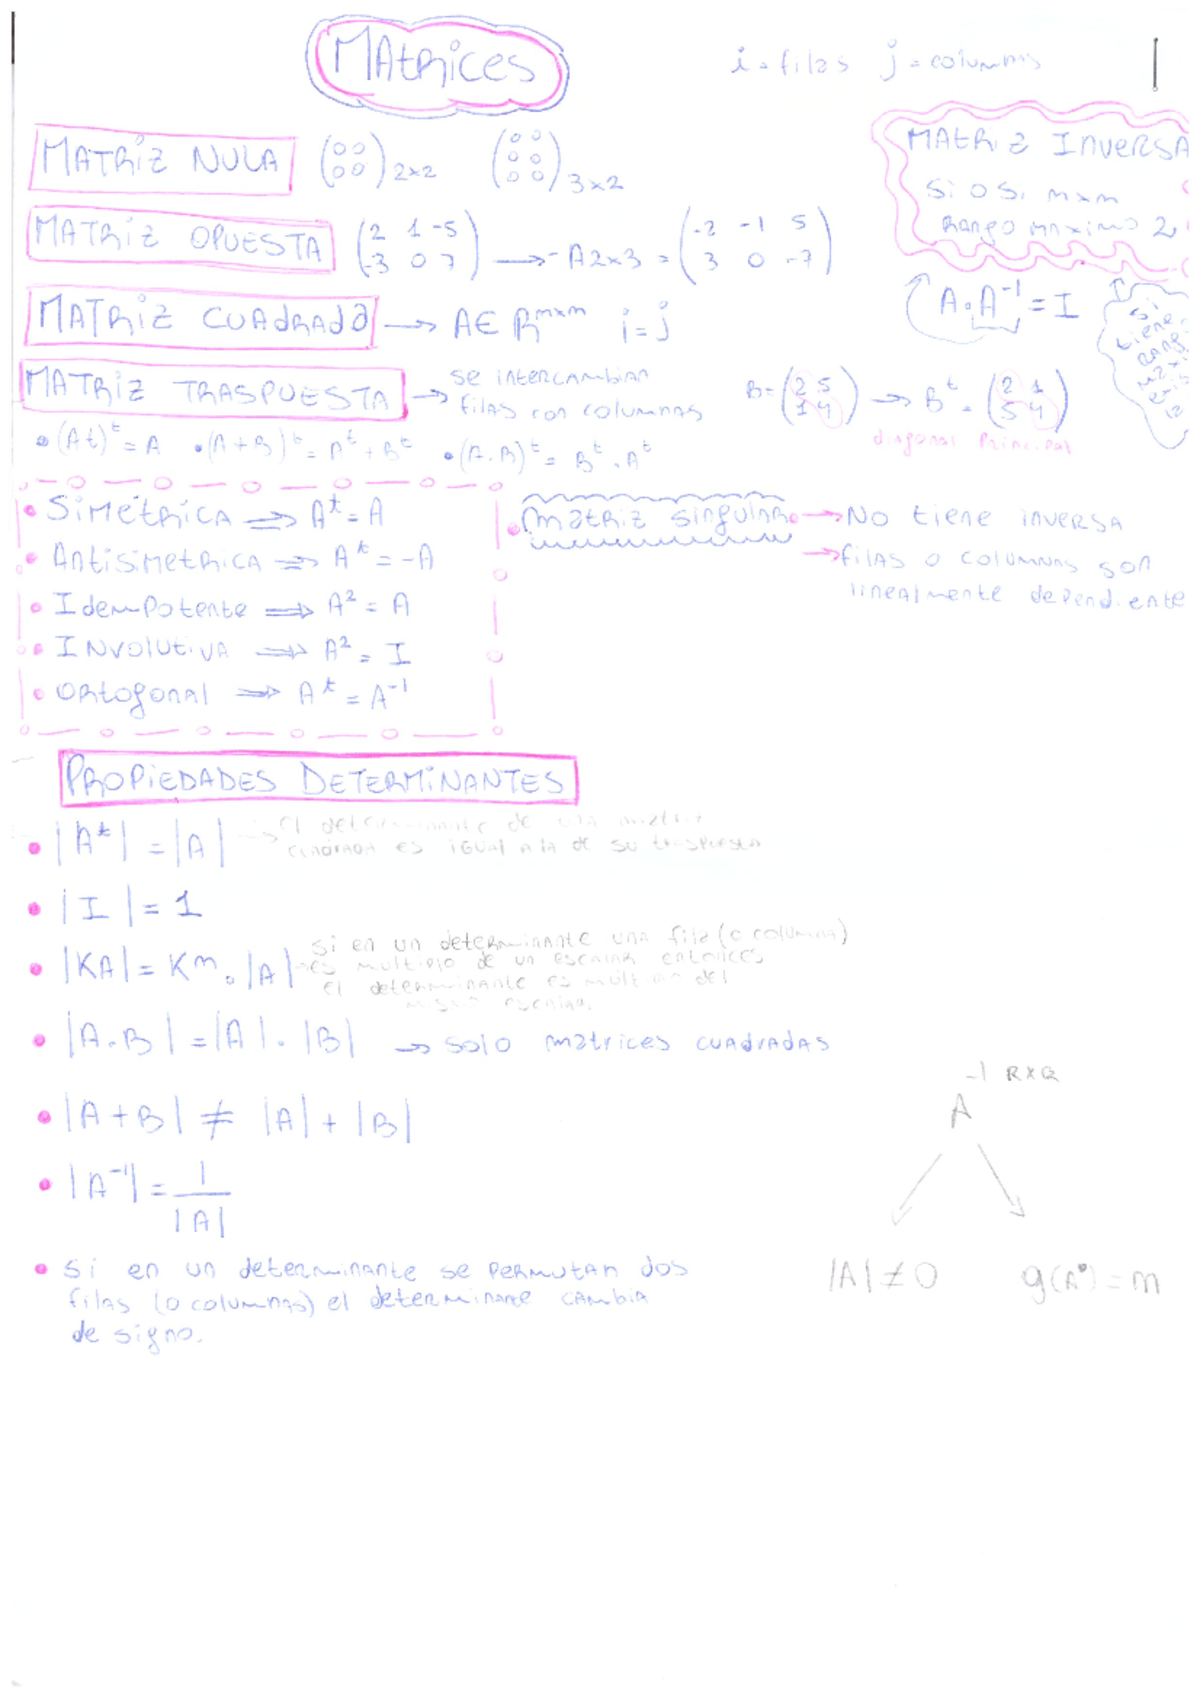 MAtrices
i = filas j = columnas
MATRIZ NULA (0 0 / 0 0) 2x2 (0 0 / 0 0 / 0 0) 3x2
MATRIZ OPUESTA (2 1 -5 / -3 0 7) → -A2x3 = (-2 -1 5 / 3 0 -7)
MATRIZ CUADRADA → A∈ R^mxm i = j
MATRIZ TRASPUESTA → se intercambian
filas con columnas
B = (2 5 / 1 4) → B^t = (2 1 / 5 4)
diagonal Principal
• (At)^t = A • (A+B)^t = A^t + B^t • (A.B)^t = B^t . A^t
MATRIZ INVERSA
Si o Si mxm
Rango maximo 2,
A.A^-1 = I
Si
tiene
rang
• SIMÉTRICA ⇒ A^t = A
• ANTISIMETRICA ⇒ A^t = -A
• Idempotente ⇒ A² = A
• INVOLUTIVA ⇒ A² = I
• ORTOGONAL ⇒ A^t = A^-1
• matriz singular → No tiene INVERSA
→ filas o columnas son
linealmente dependiente
PROPIEDADES DETERMINANTES
• |A^t| = |A| → El determinante de una matriz
cuadrada es igual a la de su traspuesta
• |I| = 1
• |KA| = K^m . |A| → si en un determinante una fila (o columna)
es multiplo de un escalar entonces
el determinante es multiplo del
mismo escalar.
• |A.B| = |A| . |B| → solo matrices cuadradas
• |A+B| ≠ |A| + |B|
• |A^-1| = 1 / |A|
• Si en un determinante se permutan dos
filas (o columnas) el determinante cambia
de signo.
A^-1 RxR
|A| ≠ 0